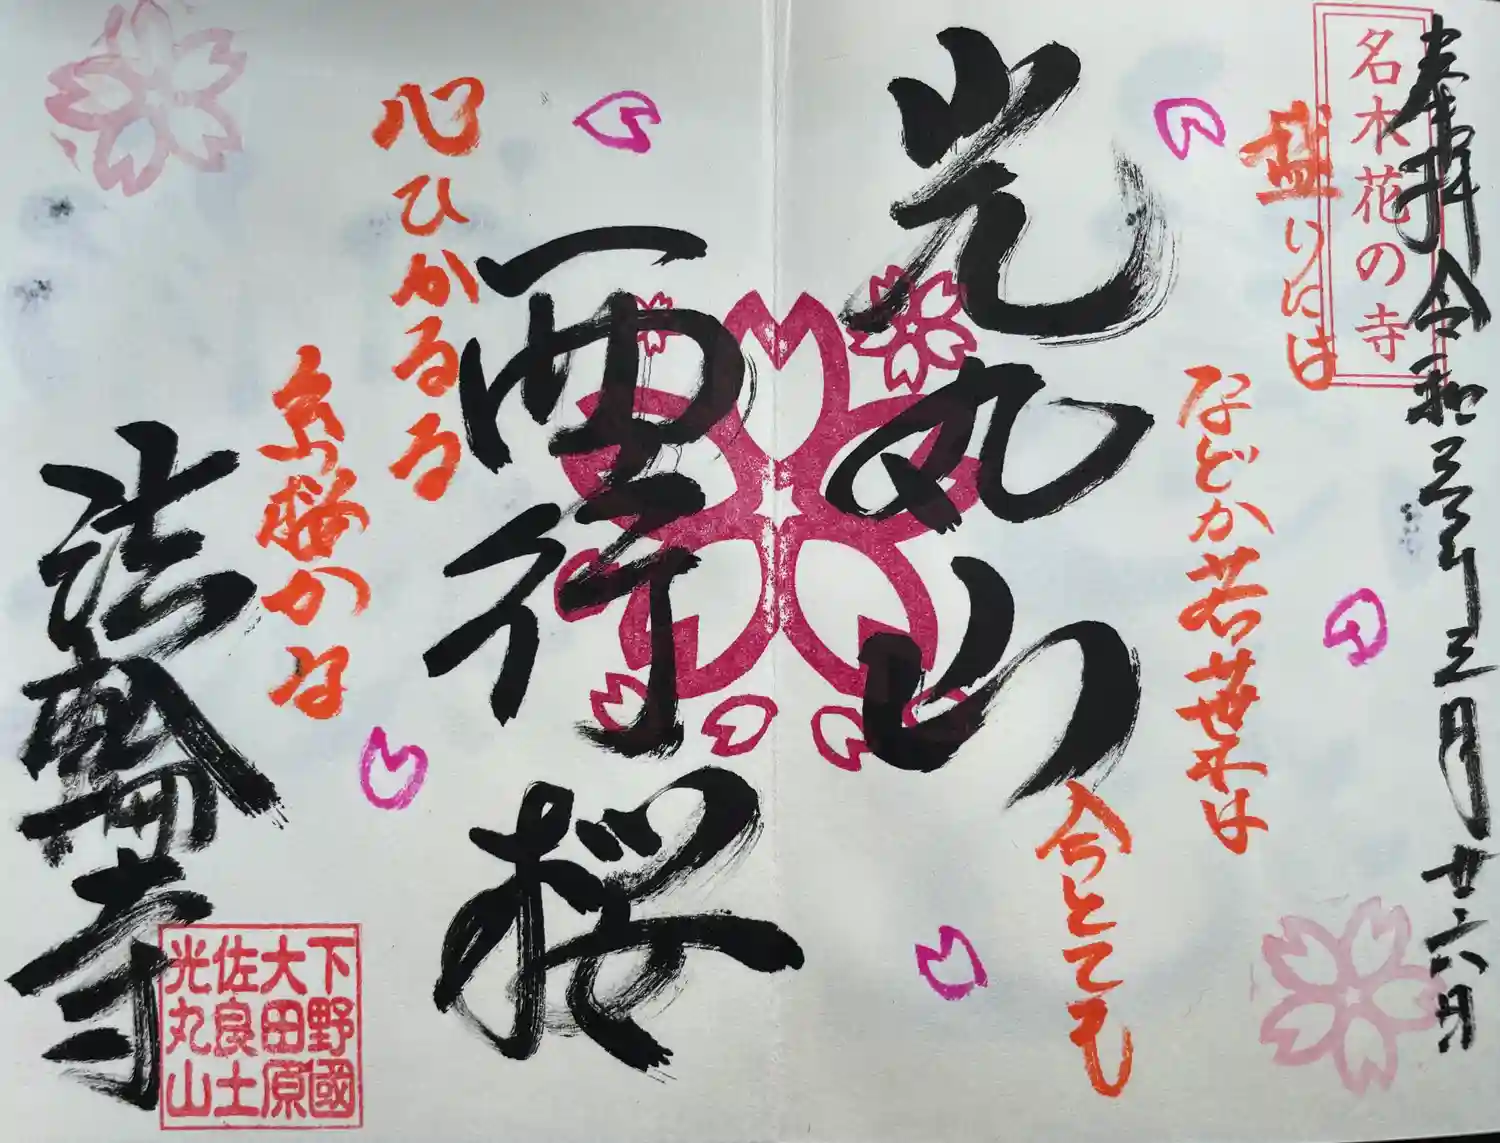 奉拝 令和三年三月廿六日
名木花の寺
盛りには
などか若葉は
今とても
光丸山
西行桜
心ひかるる
糸桜かな
法輪寺
下野國
大田原
佐良土
光丸山